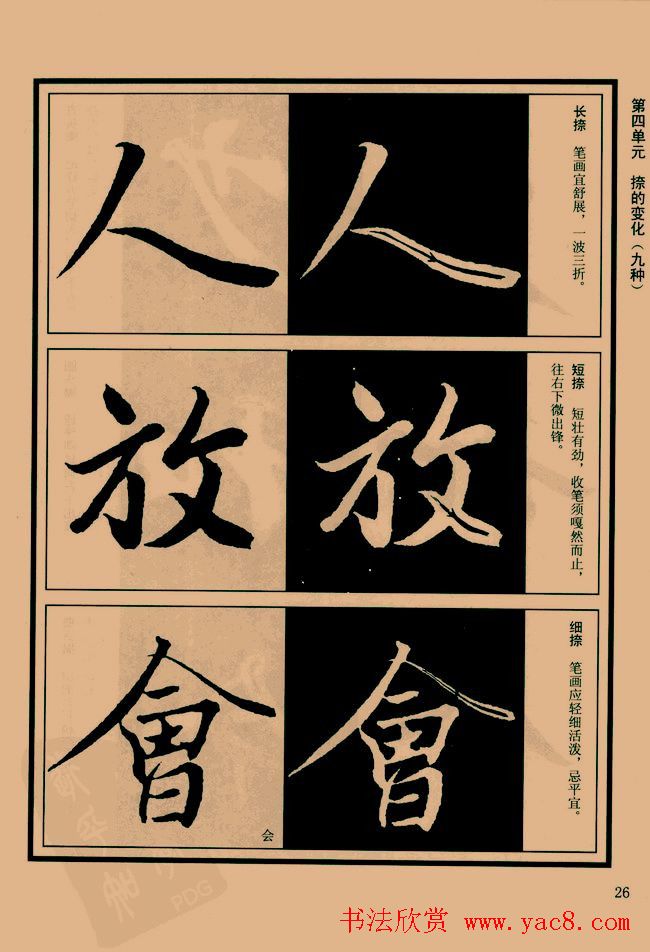 第四单元 捺的变化（九种）
人
人
长捺 笔画宜舒展，一波三折。
放
放
短捺 短壮有劲，收笔须嘎然而止，
往右下微出锋。
會
会
會
细捺 笔画应轻细活泼，忌平宜。
26
PDG
书法欣赏 www.yac8.com